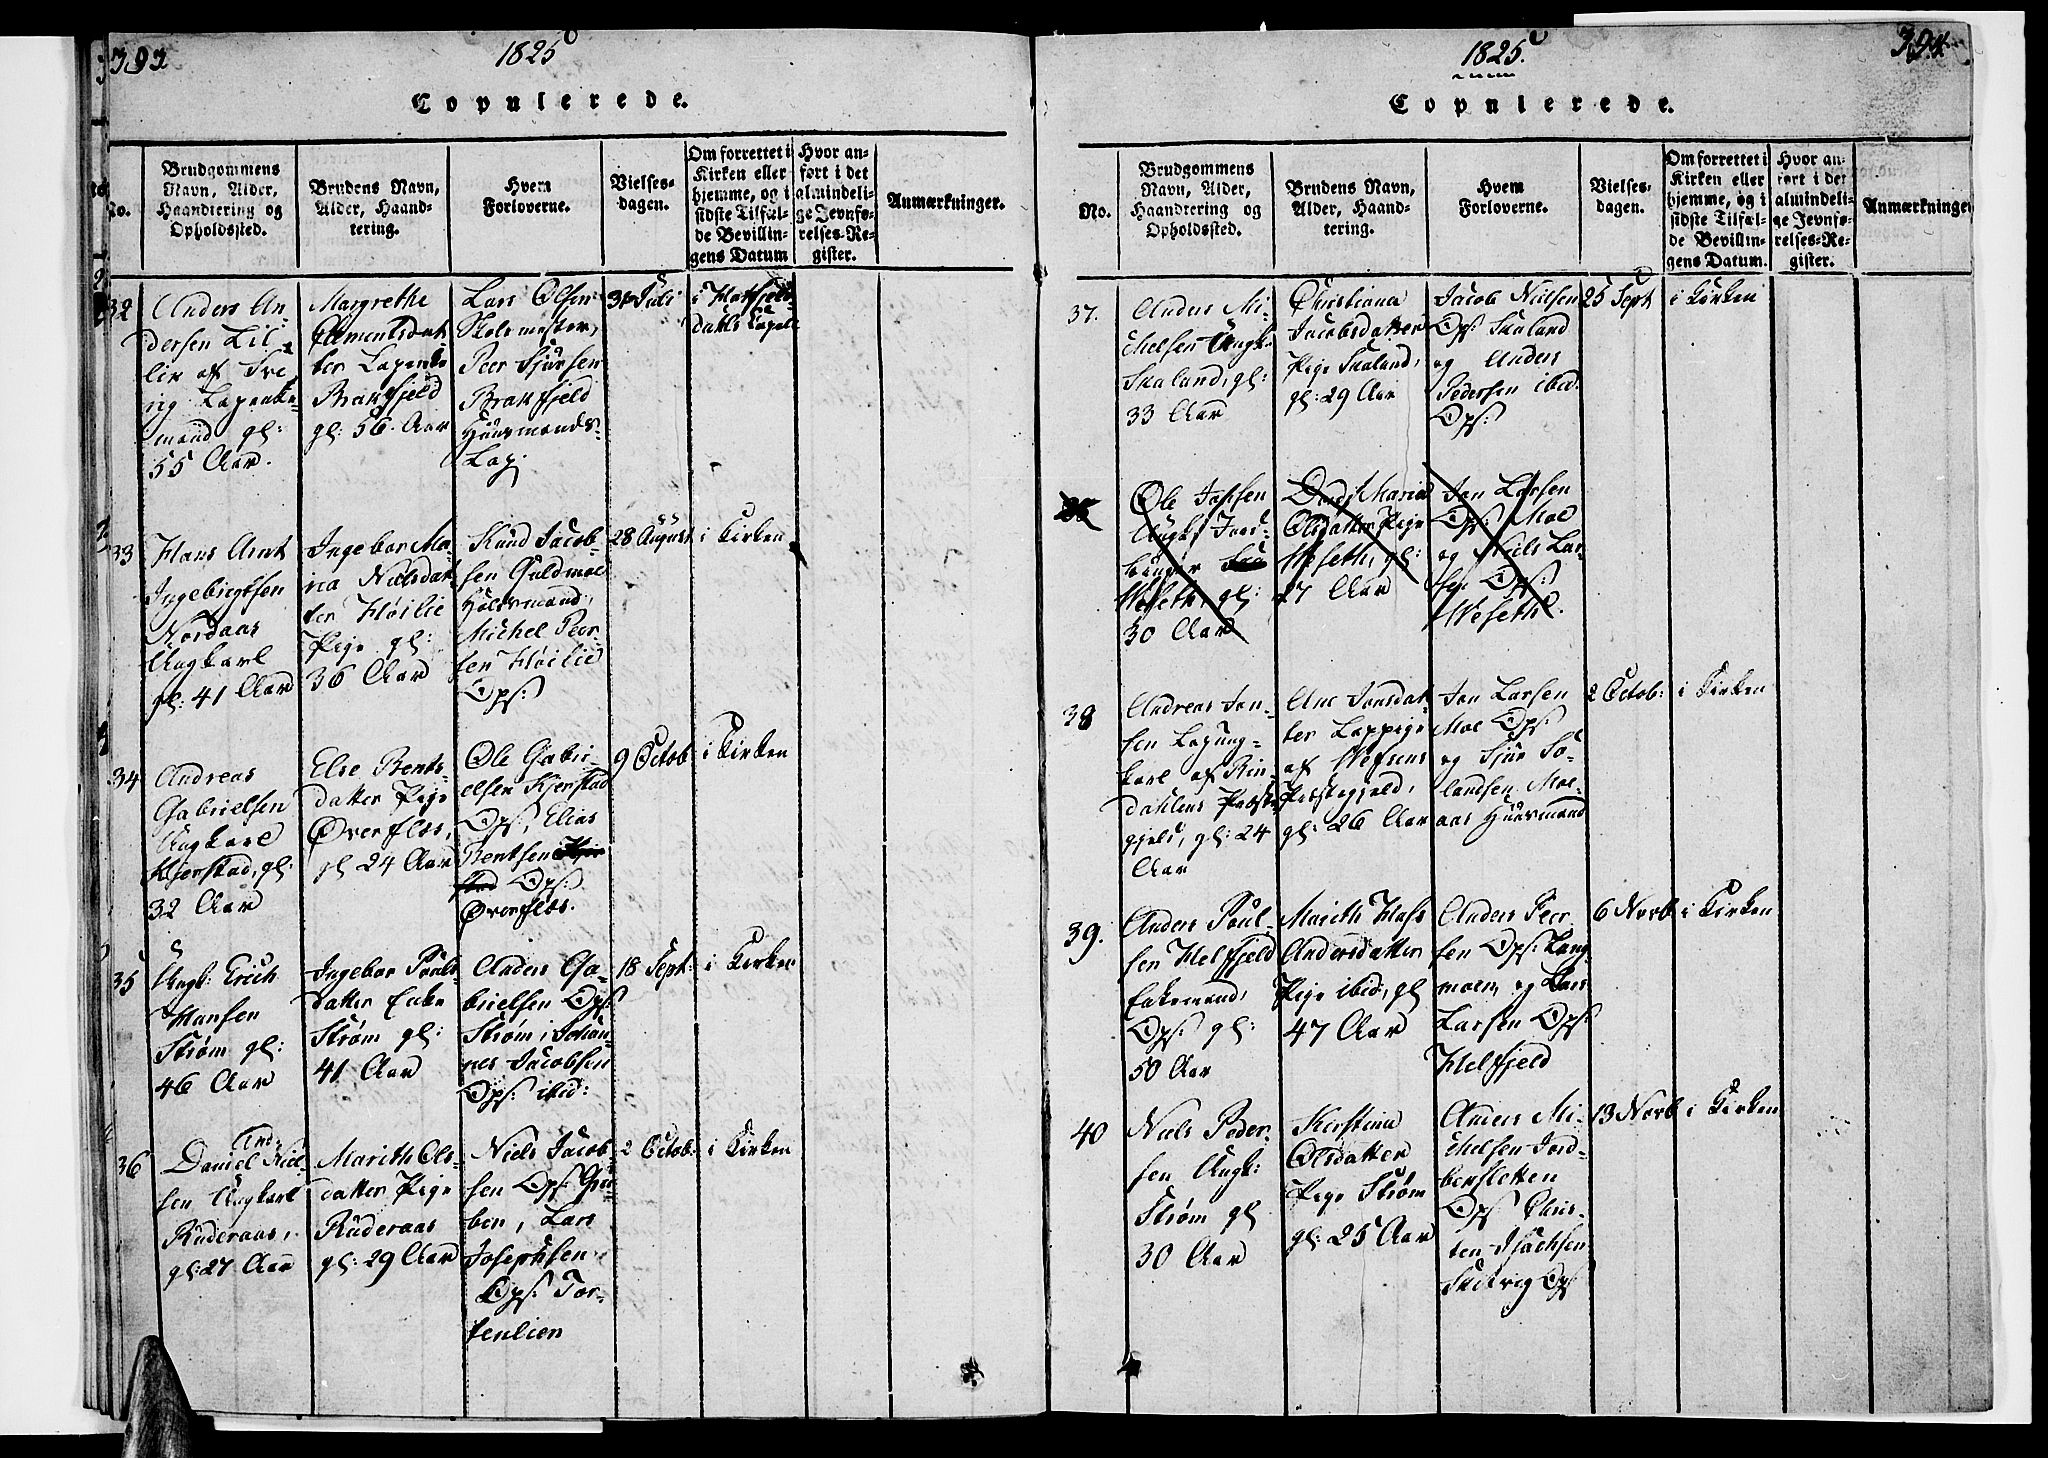 393
1825
Copulerede.
No.
Brudgommens
Navn, Alder,
Haandtering og
Opholdssted.
Brudens Navn,
Alder, Haand-
tering.
Hvem
Forloverne.
Vielses-
dagen.
Om forrettet i
Kirken eller
hjemme, og i
sidste Tilfæl-
de Bevillin-
gens Datum
Hvor an-
ført i det
almindeli-
ge Jevnfø-
relses-Re-
gister.
Anmærkninger.
32
Anders An-
dersen Lil-
lie af
Lappe-
mand gl:
55 Aar.
Margrethe
Clementsdat
ter Lappe
Brakfjeld
gl: 56 Aar
Lars Olsen
Skolemester,
Peer Sjursen
Brakfjeld
Huusmands-
Lap:
31 Juli
i Hatfjeld-
dahls Capel
33
Hans Arnt
Ingebrigtsen
Nordaas
Ungkarl
gl: 41 Aar
Ingebor Ma-
ria Nielsdat-
ter Høilie
Pige gl:
36 Aar
Knud Jacob-
sen Guldmoe
Huusmand,
Michel Peer-
sen Høilie
Ops:
28 August
i Kirken
34
Andreas
Gabrielsen
Ungkarl
Kjerstad, gl:
32 Aar
Else Bents-
datter Pige
Øverflæs,
gl 24 Aar
Ole Gabri-
elsen Kjerstad
Ops, Elias
Bentsen
Ops:
Øverflæs.
9 Octob:
i Kirken
35
Ungk: Erich
Hansen
Strøm gl:
46 Aar
Ingebor Pouls
datter Enke
Strøm gl:
41 Aar
Anders Ga-
brielsen Ops
Strøm, Johan-
nes Jacobsen
Ops: ibid:
18 Sept:
i Kirken
36
And:
Daniel Niel-
sen Ungkarl
Ruderaas,
gl: 27 Aar
Marith Ols-
datter Pige
Ruderaas
gl: 29 Aar
Niels Jacob
sen Ops Gru-
ben, Lars
Josephsen
Ops: Tor-
fenlien
2 Octob:
i Kirken
394
1825.
Copulerede.
No.
Brudgommens
Navn, Alder,
Haandtering og
Opholdssted.
Brudens Navn,
Alder, Haand-
tering.
Hvem
Forloverne.
Vielses-
dagen.
Om forrettet i
Kirken eller
hjemme, og i
sidste Tilfæl-
de Bevillin-
gens Datum.
Hvor an-
ført i det
almindeli-
ge Jevnfø-
relses-Re-
gister.
Anmærkninger
37.
Anders Mi-
chelsen Ungk:
Skaland, gl:
33 Aar
Christiana
Jacobsdatter
Pige Skaland,
gl: 29 Aar
Jacob Nielsen
Ops: Skaland
og Anders
Pedersen ibid.
Ops:
25 Sept
i Kirken
38
Ole Jepsen
Ungk:
Weseth, gl:
30 Aar
Maria
Olsdatter Pige
Weseth, gl:
27 Aar
Jon Larsen
Ops: Moe
og Niels Lar-
sen Ops:
Weseth.
38
Andreas Jon-
sen Lapung-
karl af Rin-
dahlens Præste
gjeld, gl: 24
Aar
Ane Jonsdat
ter Lappige
af Wefsens
Præstegjeld,
gl: 26 Aar
Jon Larsen
Moe Ops
og Sjur So-
landsen Moe-
aas Huusmand
2 Octob:
i Kirken
39.
Anders Poul-
sen Helfjeld
Enkemand,
Ops: gl:
50 Aar
Marith
Andersdatter
Pige ibid:, gl
47 Aar
Anders Peer-
sen Ops: Lang
moen, og Lars
Larsen Ops:
Helfjeld
6 Novb
i Kirken
40
Niels Peder-
sen Ungk:
Strøm gl
30 Aar
Kirstina
Olsdatter
Pige Strøm
gl: 25 Aar
Anders Mi-
chelsen Jord-
bersletten
Ops Chris-
ten Isachsen
Ops
13 Novb
i Kirken